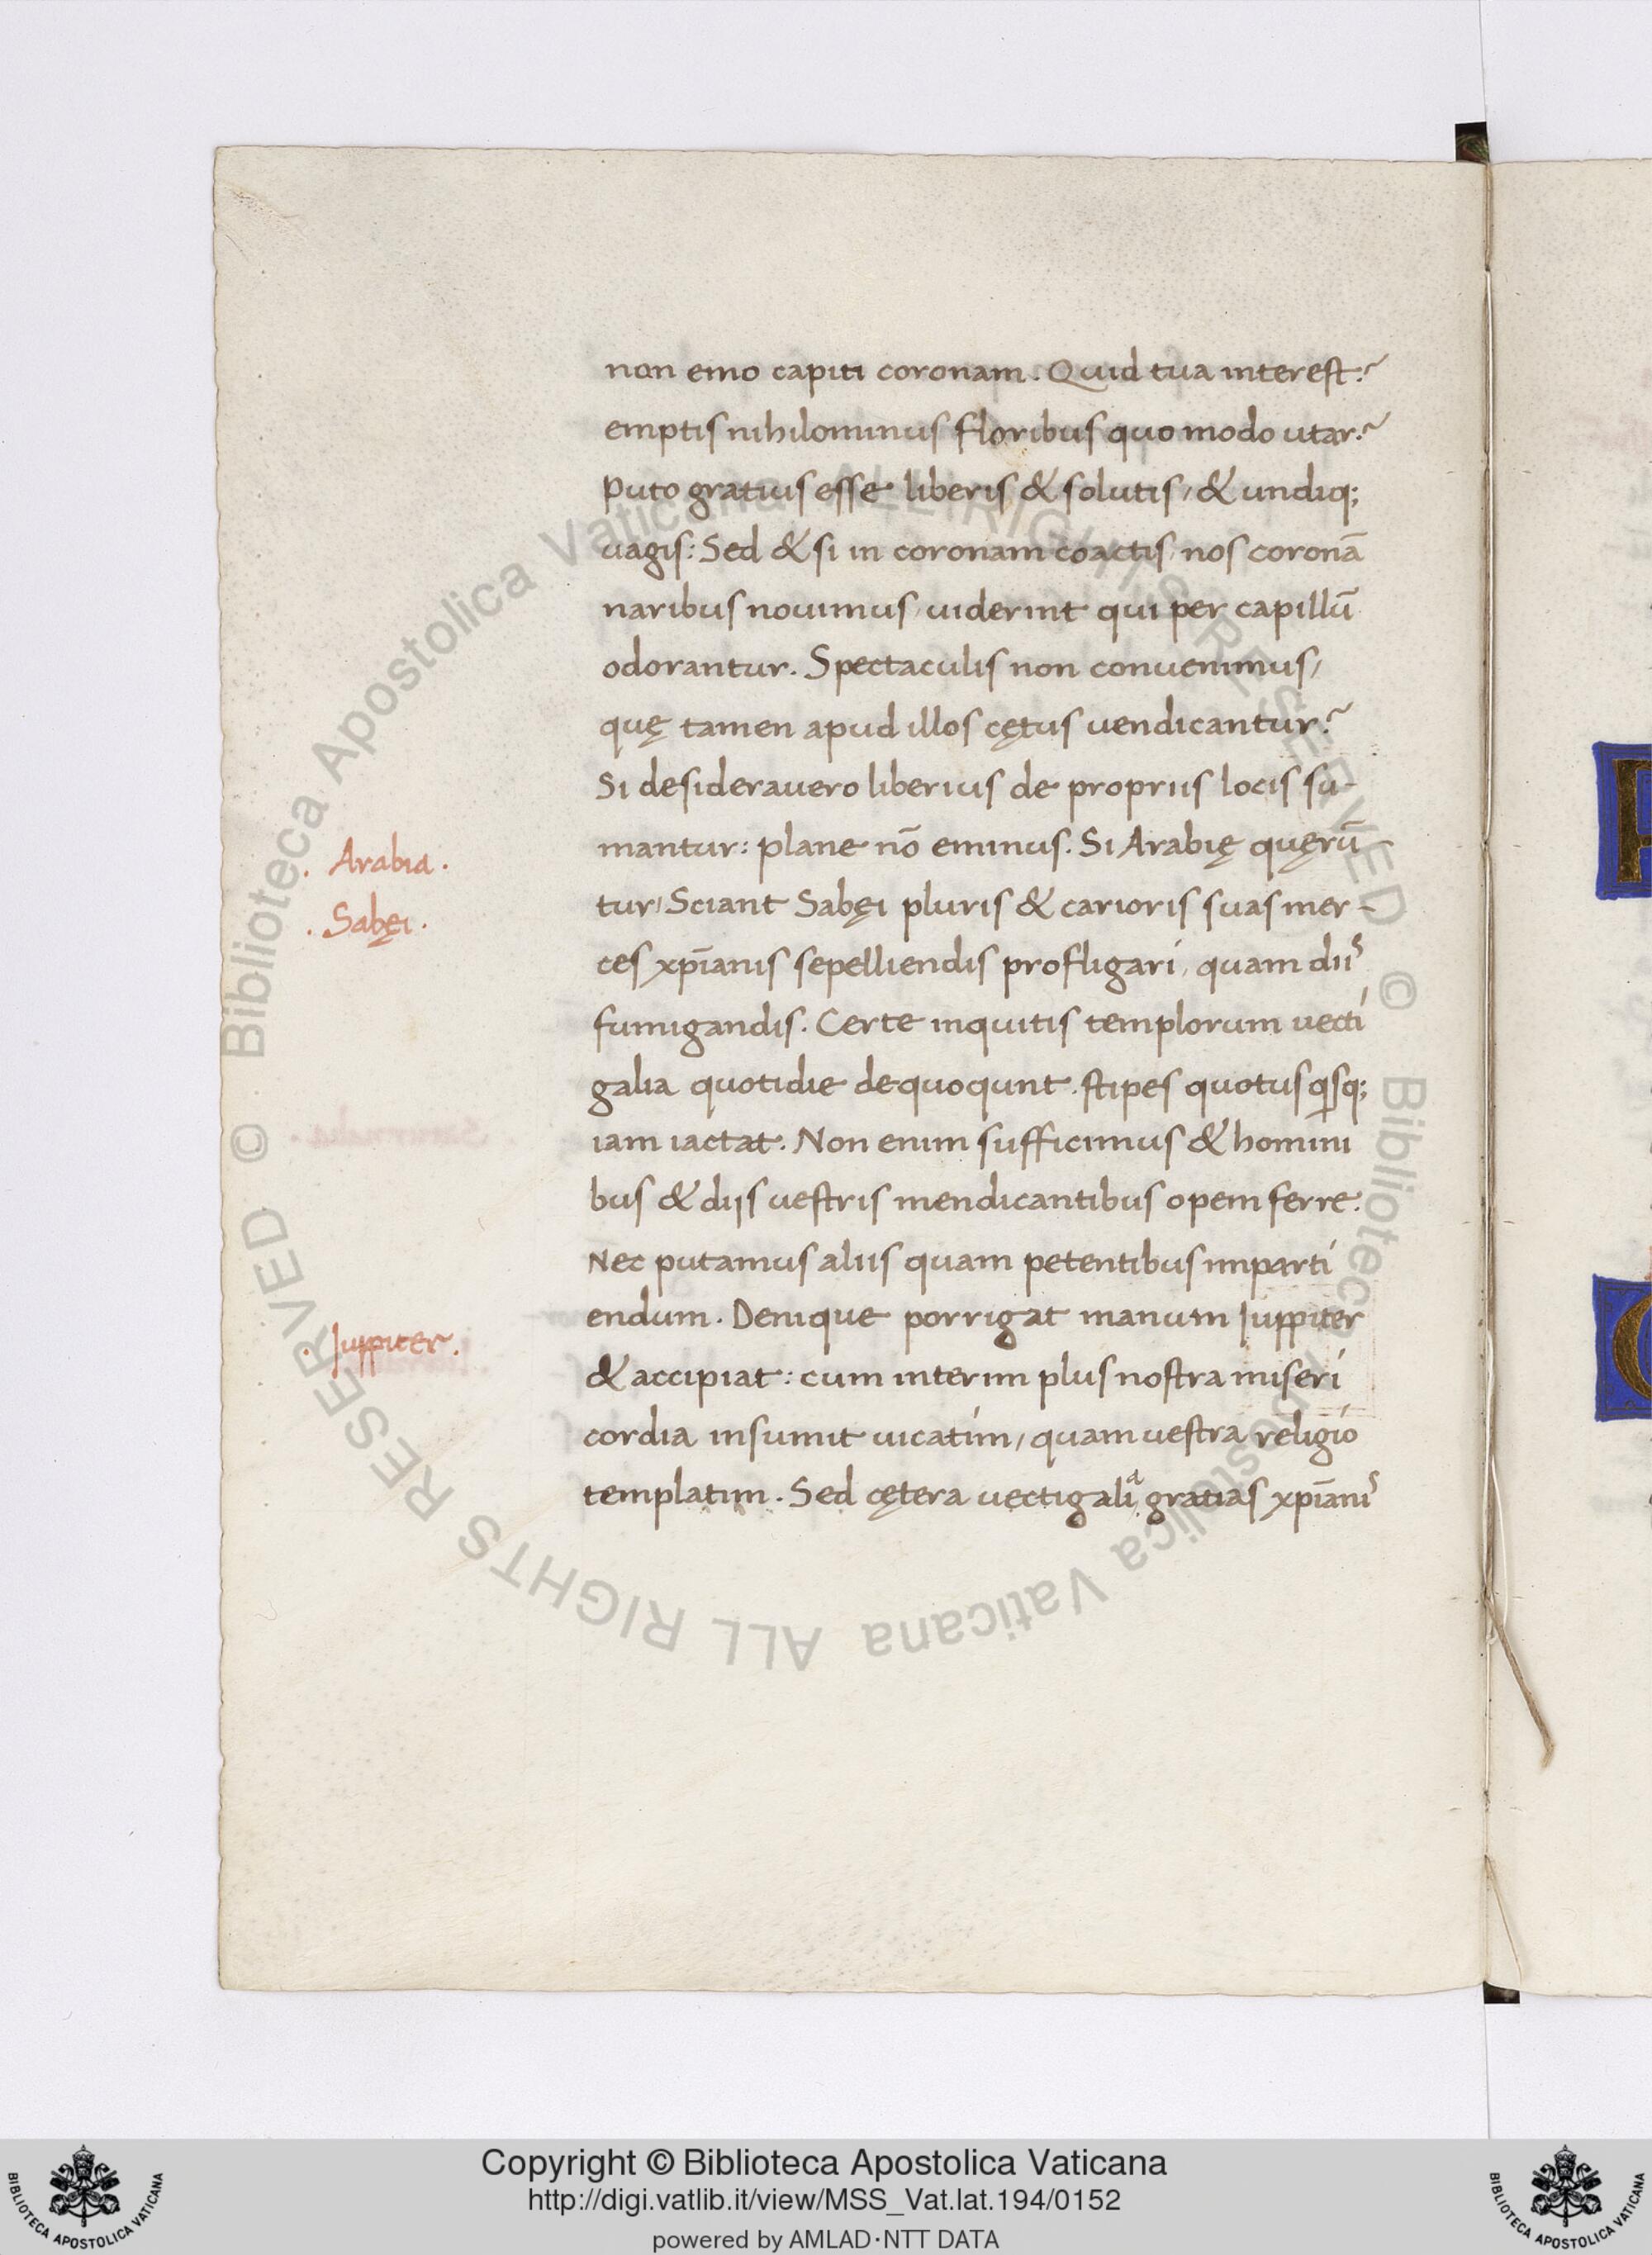 non emo capiti coronam. Quid tua interest?
emptis nihilominus floribus quo modo utar?
Puto gratius esse liberis & solutis, & undiq;
uagis: Sed & si in coronam coactis, nos coronā
naribus nouimus, uiderint qui per capillū
odorantur. Spectaculis non convenimus,
quę tamen apud illos cętus vendicantur?
Si desideravero liberius de propriis locis su-
mantur: plane nō eminus. Si Arabię quęrū-
. Arabia.
tur, Sciant Sabęi pluris & carioris suas mer-
. Sabęi.
ces xp̄ianis sepelliendis profligari, quam diis
fumigandis. Certe inquitis templorum vecti
galia quotidie dequoqunt. stipes quotus qsq;
iam iactat. Non enim sufficimus & homini
bus & diis uestris mendicantibus opem ferre.
Nec putamus aliis quam petentibus imparti
endum. Denique porrigat manum Iuppiter
. Iuppiter.
& accipiat: cum interim plus nostra miseri
cordia insumit uicatim, quam uestra religio
templatim. Sed cętera vectigalia gratias xp̄ianis
© Biblioteca Apostolica Vaticana ALL RIGHTS RESERVED © Biblioteca Apostolica Vaticana ALL RIGHTS RESERVED
Copyright © Biblioteca Apostolica Vaticana
http://digi.vatlib.it/view/MSS_Vat.lat.194/0152
powered by AMLAD·NTT DATA
BIBLIOTECA APOSTOLICA VATICANA
BIBLIOTECA APOSTOLICA VATICANA